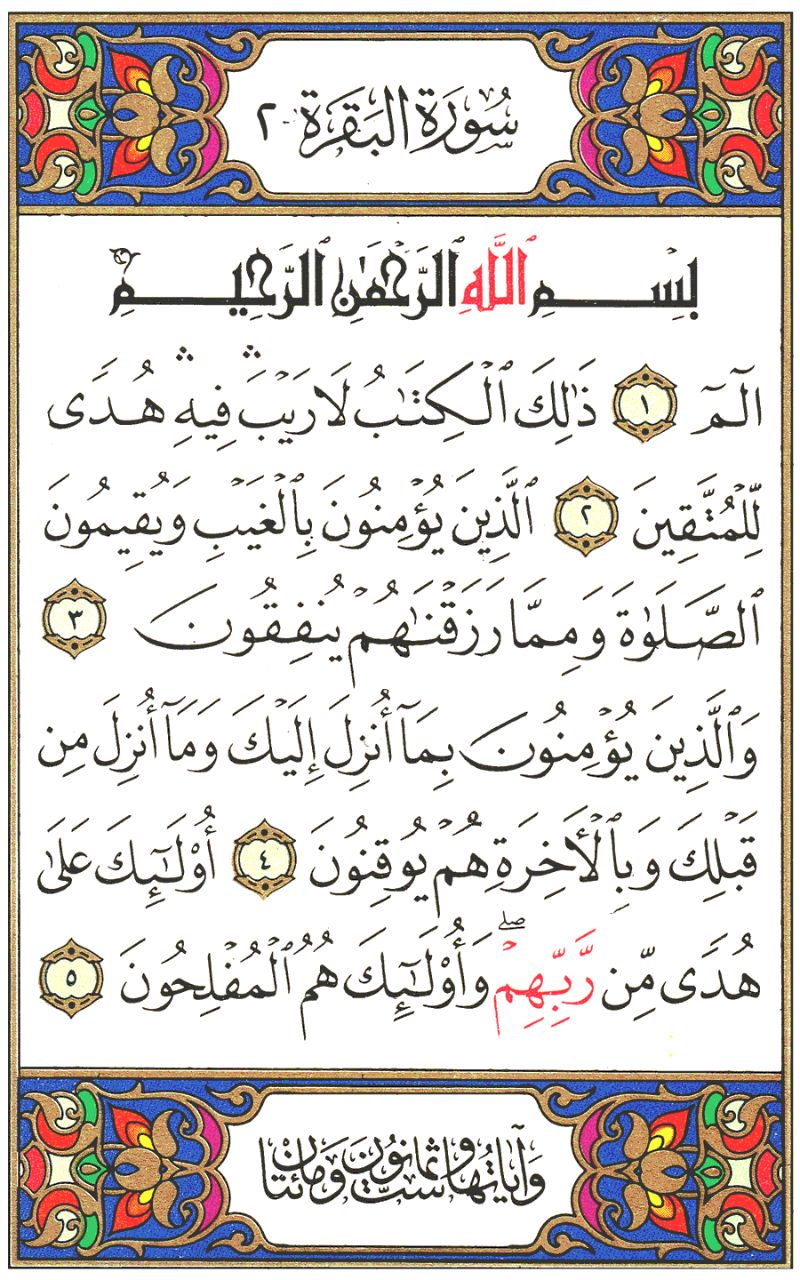 سُورَةُ البَقَرَةِ ٢
بِسْمِ ٱللَّهِ ٱلرَّحْمَٰنِ ٱلرَّحِيمِ
الٓمٓ ١ ذَٰلِكَ ٱلْكِتَٰبُ لَا رَيْبَ ۛ فِيهِ ۛ هُدًى
لِّلْمُتَّقِينَ ٢ ٱلَّذِينَ يُؤْمِنُونَ بِٱلْغَيْبِ وَيُقِيمُونَ
ٱلصَّلَوٰةَ وَمِمَّا رَزَقْنَٰهُمْ يُنفِقُونَ ٣
وَٱلَّذِينَ يُؤْمِنُونَ بِمَآ أُنزِلَ إِلَيْكَ وَمَآ أُنزِلَ مِن
قَبْلِكَ وَبِٱلْأَخِرَةِ هُمْ يُوقِنُونَ ٤ أُوْلَٰٓئِكَ عَلَىٰ
هُدًى مِّن رَّبِّهِمْ ۖ وَأُوْلَٰٓئِكَ هُمُ ٱلْمُفْلِحُونَ ٥
وَآيَاتُهَا سِتٌّ وَثَمَانُونَ وَمَائَتَانِ